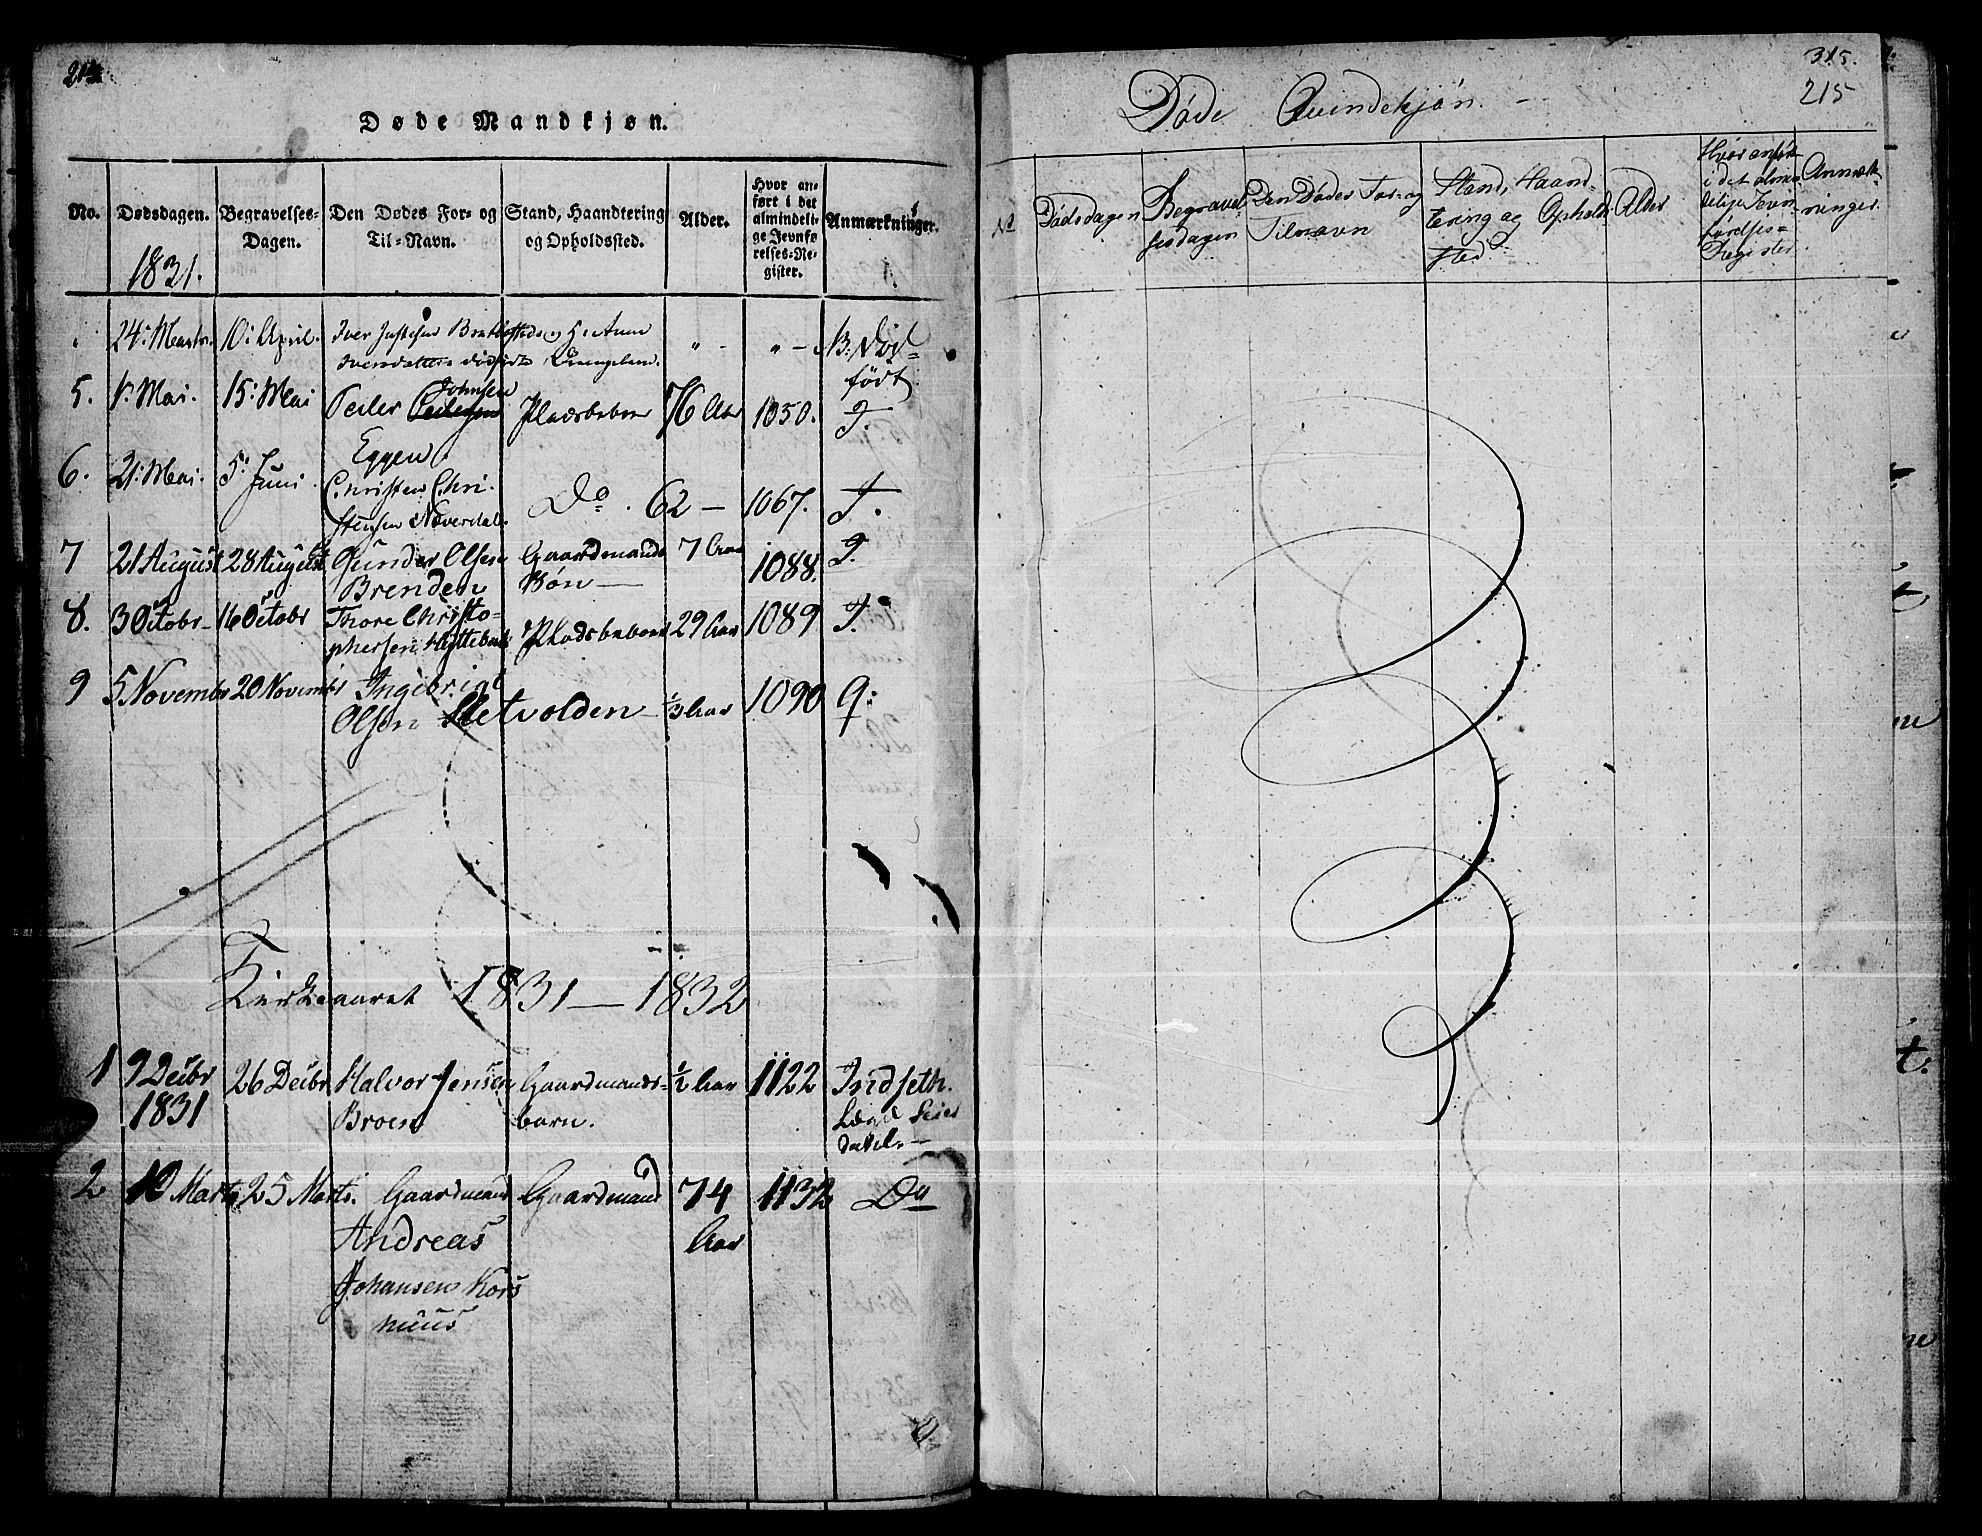 214
Døde Mandkjøn.
No. Dødsdagen. Begravelses-Dagen. Den Dødes For- og Til-Navn. Stand, Haandtering og Opholdssted. Alder. Hvor anført i det almindelige Jevnførelses-Register. Anmærkninger.
1831.
24: Marts. 10: April. Iver Justesen H: Anne " - " - NB: Død-
Iversdatters dødfødte født.
5. 1: Mai. 15: Mai Peder Johnsen Pladsbeboer 76 Aar 1050. T.
Eggen
6. 21: Mai. 5: Juni. Christen Chri- Do. 62 — 1067. T.
stensen Næverdal.
7 21 August 28 August Gunder Olsen Gaardmands 7 Aar 1088. T.
Brenden Søn —
8. 3 Octobr 16 Octobr Thore Christo- Pladsbeboer 29 Aar 1089 T.
phersen
9 5 Novembr 20 Novembr Ingebrigt
Olsen Sletvolden 1/3 Aar 1090 q:
Kirkeaaret 1831 — 1832
1 9 Decbr 26 Decbr Halvor Jensen Gaardmands- 1/2 Aar 1122 Indseth.
1831 Broen barn.
2 10 Marts 25 Marts. Gaardmand Gaardmand 74 1132 Do
Andreas Aar
Johansen Kors
huus
315.
215
Døde Qvindekjøn. -
No Dødsdagen Begravelsesdagen Den Dødes For- og Tilnavn Stand, Haandtering og Opholdssted Alder Hvor anført i det almindelige Jevnførelses-Register Anmærkninger.